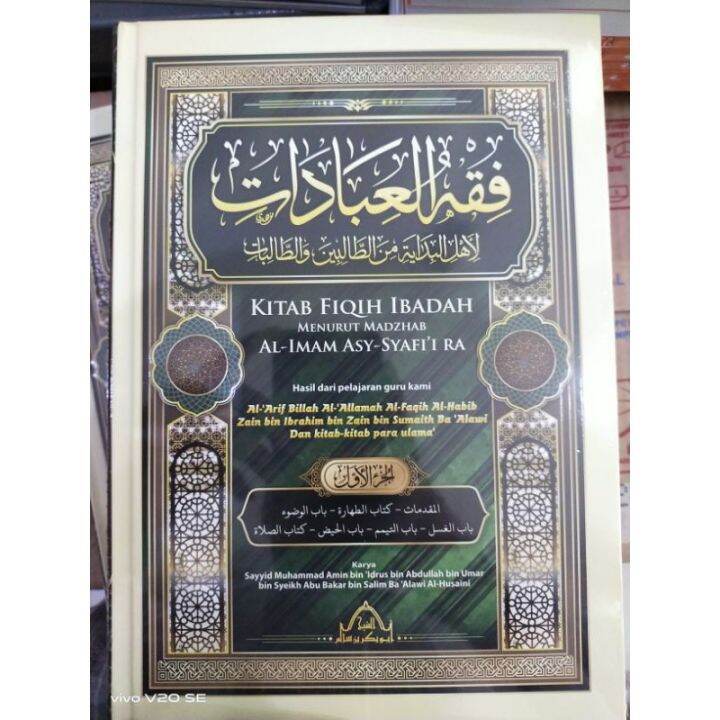 فقه العبادات
لأهل البداية من الطالبين والطالبات
KITAB FIQIH IBADAH
MENURUT MADZHAB
AL-IMAM ASY-SYAFI'I RA
Hasil dari pelajaran guru kami
Al-'Arif Billah Al-'Allamah Al-Faqih Al-Habib
Zain bin Ibrahim bin Zain bin Sumaith Ba 'Alawi
Dan kitab-kitab para ulama'
الجزء الأول
المقدمات - كتاب الطهارة - باب الوضوء
باب الغسل - باب التيمم - باب الحيض - كتاب الصلاة
Karya
Sayyid Muhammad Amin bin 'Idrus bin Abdullah bin Umar
bin Syeikh Abu Bakar bin Salim Ba 'Alawi Al-Husaini
الشيخ
أبو بكر بن سالم
vivo V20 SE